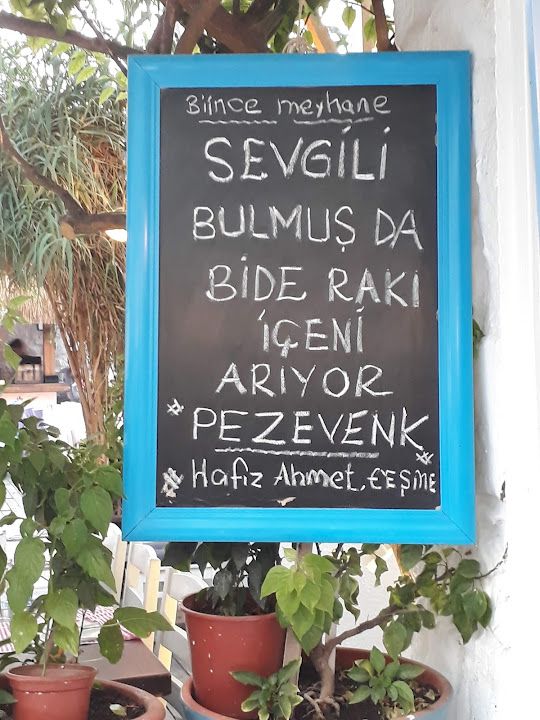 Bilnce meyhane
SEVGİLİ
BULMUŞ DA
BİDE RAKI
İÇENİ
ARIYOR
# PEZEVENK *
# Hafız Ahmet, ÇEŞME